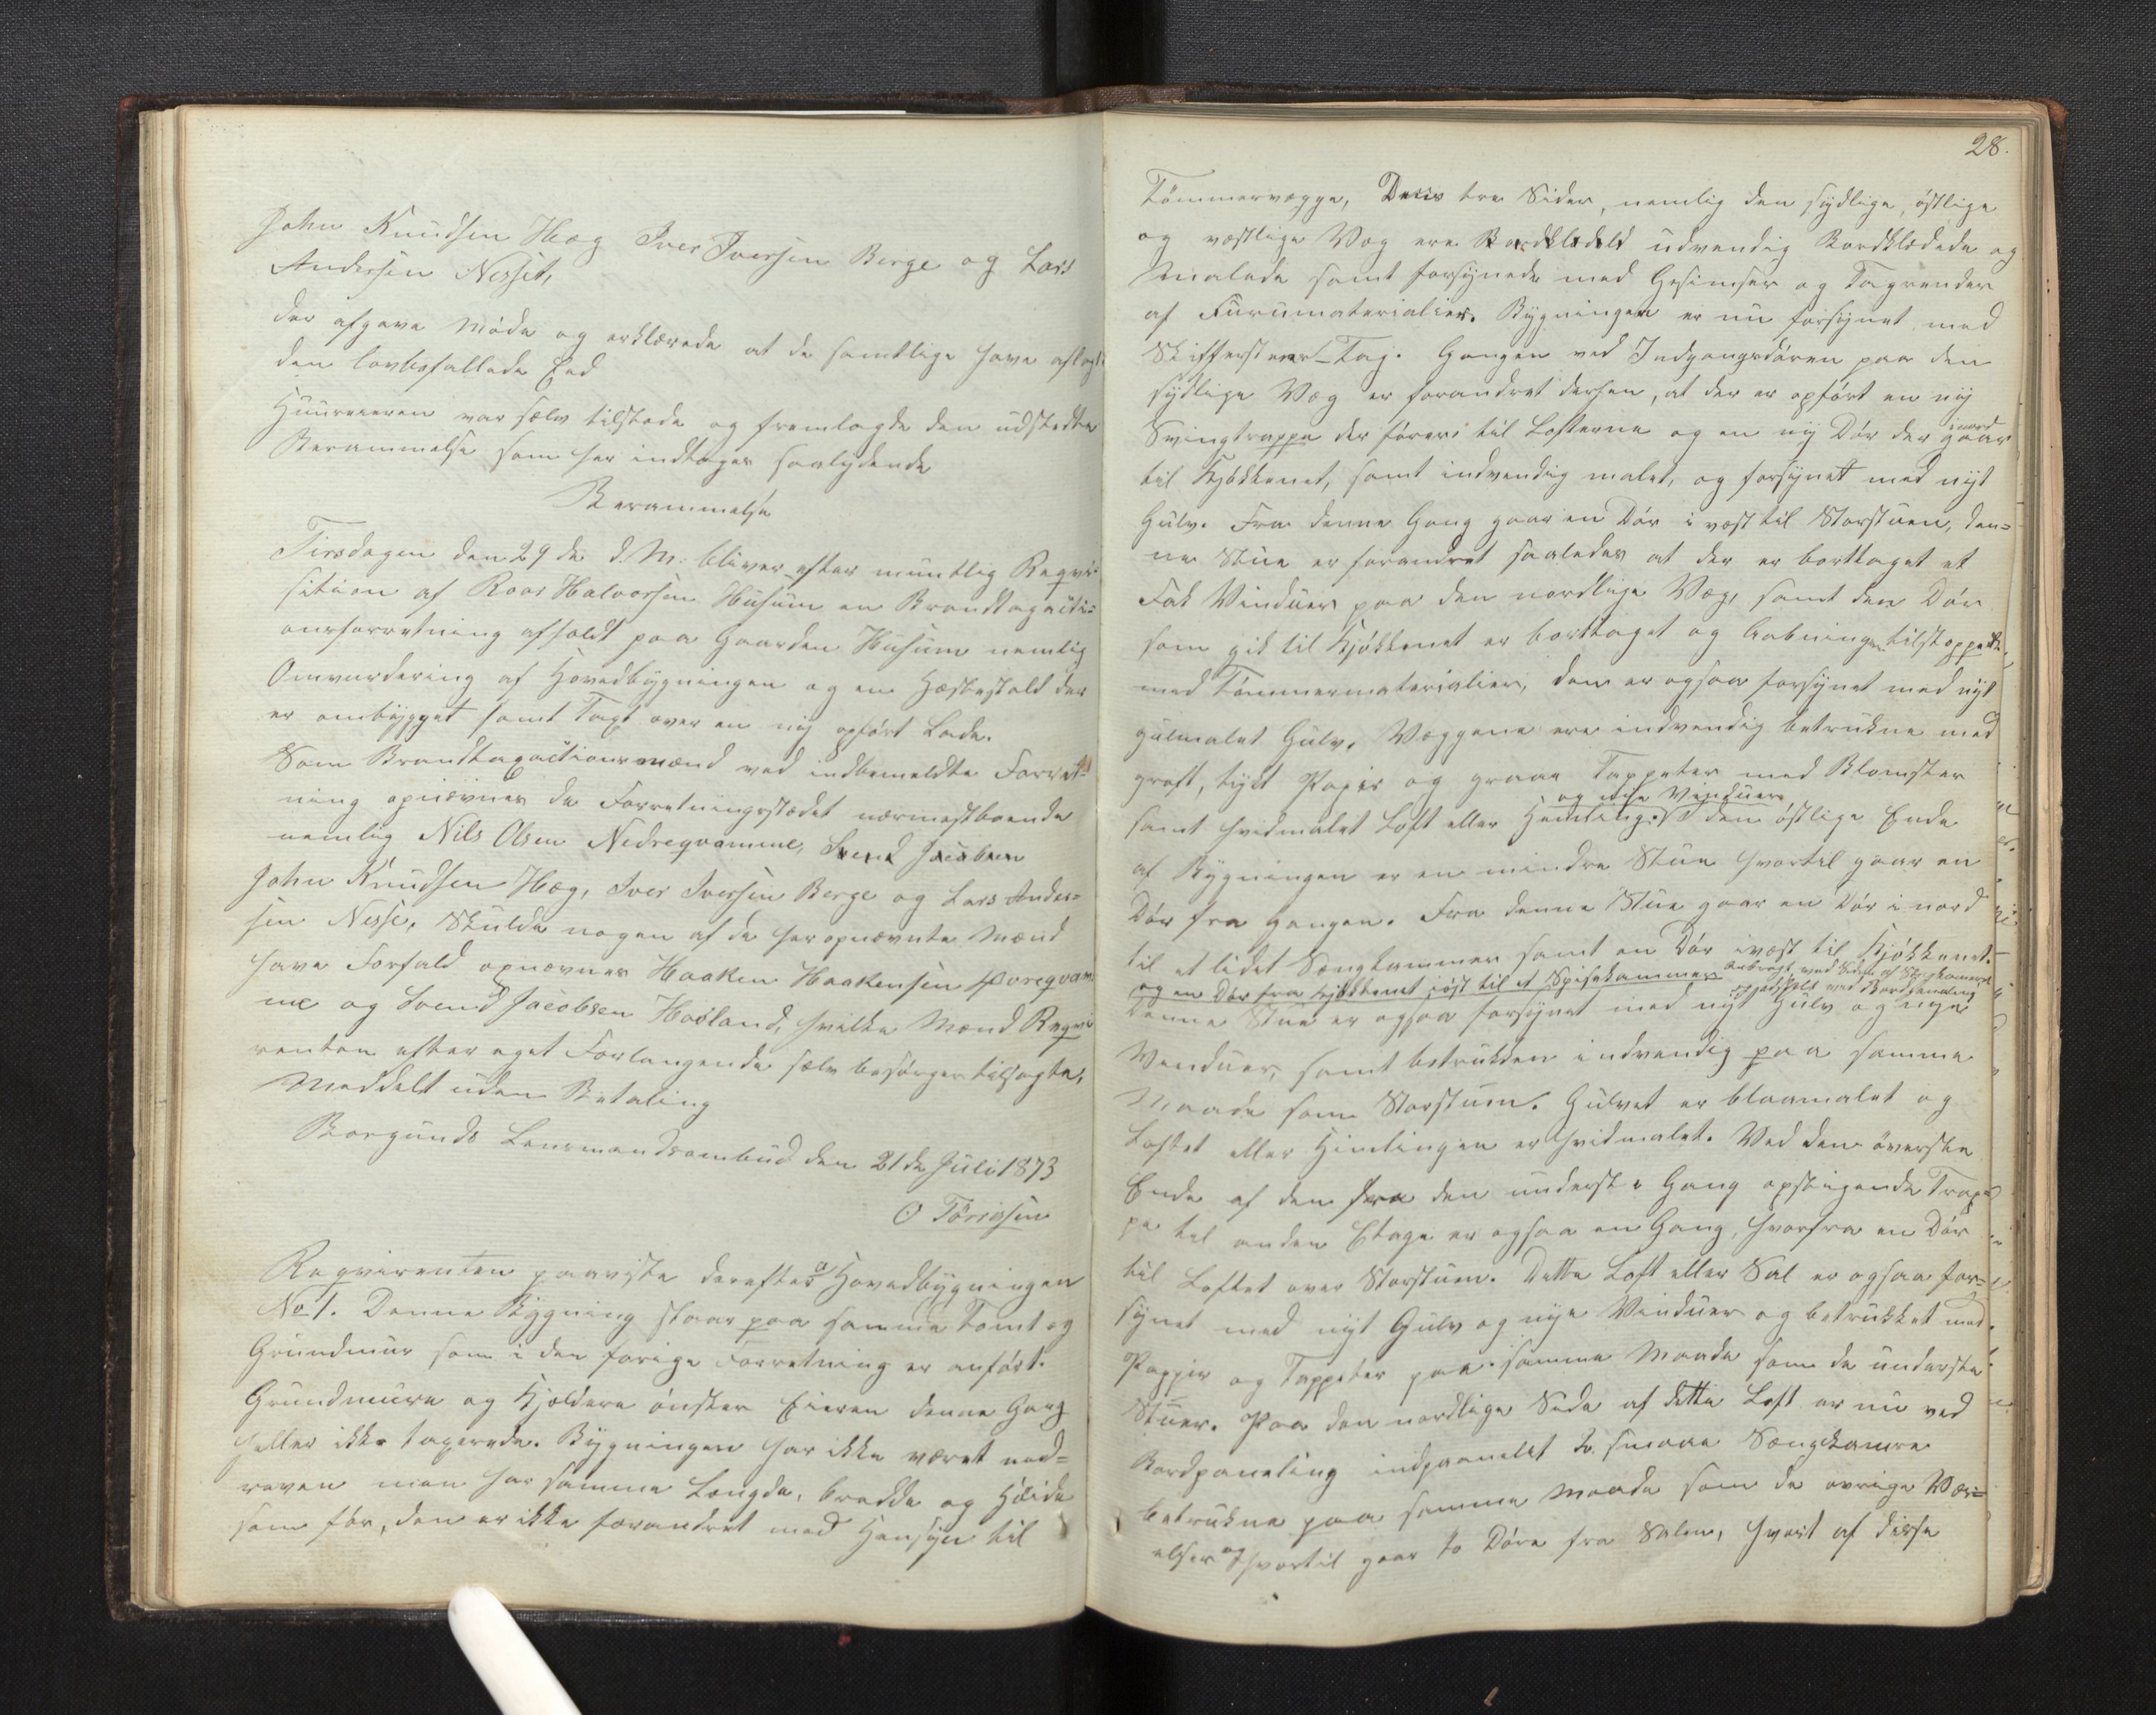 John Knudsen Hæg Iver Iversen Berge og Lars
Andersen Nesset,
der afgave Møde og erklærede at de samtlige have aflagt
den lovbefallede Eed
Huuseieren var sælv tilstede og fremlagde den udstedte
Berammelse som her indtages saalydende
Berammelse
Tirsdagen den 29de d. M. bliver efter muntlig Reqvi-
sition af Roar Halvorsen Husum en Brandtaxatii-
onsforretning afholdt paa Gaarden Husum nemlig
Omvurdering af Hovedbygningen og en Hæstestald der
er ombygget samt Taxt over en ny opført Lade.
Som Brandtaxationsmænd ved indbemeldte Forret-
ning opnævnes de Forretningsstædet nærmestboende
nemlig Nils Olsen Nedreqvamme, Svend Jacobsen
John Knudsen Hæg, Iver Iversen Berge og Lars Ander=
sen Nesse, Skulde nogen af de her opnævnte Mænd
have Forfald opnævnes Haaken Haakensen Øvreqvam
me og Svend Jacobsen Haoland, hvilke Mænd Reqvi
renten efter eget Forlangende sælv besørger tilsagte,
Meddelt uden Betaling
Borgunds Lensmandsombud den 21de Juli 1873
O Törrisen
Reqvirenten paaviste derefter a Hovedbygningen
No 1. Denne Bygning staar paa samme Tomt og
Grundmuur som i den forige Forretning er anført.
Grundmure og Kjældere ønsker Eieren denne Gang
heller ikke taxerede. Bygningen har ikke været ned=
reven men har samme Længde, bredde og Høide
som før, den er ikke forandret med Hensyn til
28.
Tömmervægge, Dens tre Sider, nemlig den sydlige, østlige
og væstlige Væg ere Bordklædeld udvendig Bordklædede og
Malede samt forsynede med Gesimser og Tagrender
af Furumaterialier. Bygningen er nu forsynet med
Skiffersteens-Tag. Gangen ved Indgangsdøren paa den
sydlige Væg er forandret derhen, at der er opført en ny
Svingtrappe der fører til Lofterne og en ny Dør der gaar inord
til Kjøkkenet, samt indvendig malet, og forsynet med nyt
Gulv. Fra denne Gang gaar en Dør i væst til Storstuen, den=
ne Stue er forandret saaledes at der er borttaget et
Fak Vinduer paa den nordlige Væg, samt den Dør
som gik til Kjøkkenet er borttaget og Aabningen tilstoppet
med Tømmermaterialier, den er ogsaa forsynet med nyt
gulmalet Gulv, Væggene ere indvendig betrukne med
groft, tykt Papir og graae Tappeter med Blomster
og nye Vinduer
samt hvidmalet Loft eller Hemling. I den østlige Ende
af Bygningen er en mindre Stue hvortil gaar en
Dør fra gangen. Fra denne Stue gaar en Dør i nord
til et lidet Sængkammer samt en Dør i væst til Kjøkkenet.
og en Dør fra Kjøkkenet i øst til et Spisekammer Anbragt ved Siden af Sængkamret
adskilt ved Bordpaneling
Denne Stue er ogsaa forsynet med nyt Gulv og nye
Venduer, samt betrukken indvendig paa samme
Maade som Storstuen. Gulvet er blaamalet og
Loftet eller Himlingen er hvidmalet. Ved den øverste
Ende af den fra den underste Gang opstigende Trap=
pe til anden Etage er ogsaa en Gang, hvorfra en Dør
til Loftet over Storstuen. Dette Loft eller Sal er ogsaa for=
synet med nyt Gulv og nye Vinduer og betrukket med
Pappir og Tappeter paa samme Maade som de underste
Stuer. Paa den nordlige Side af dette Loft er nu ved
Bordpaneling indpaanelet to smaae Sængkamre
betrukne paa samme Maade som de øvrige Vær=
elser og hvortil gaar to Døre fra Salen, hvert af disse